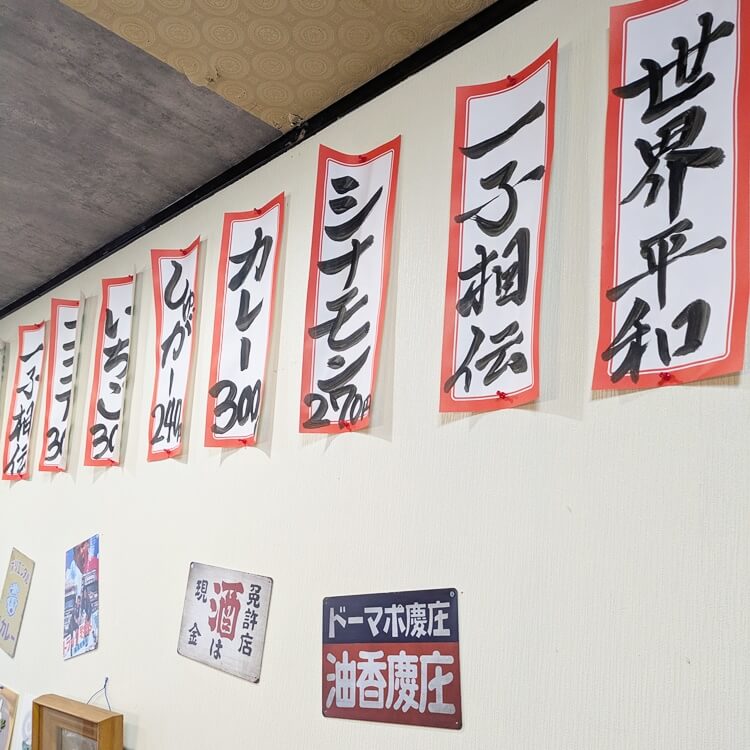 世界平和
一子相伝
シナモン
270円
カレー
300
しゅガー
240
いちご
一子相伝
免許店
酒は
現金
庄慶ポマード
庄慶香油
カレー